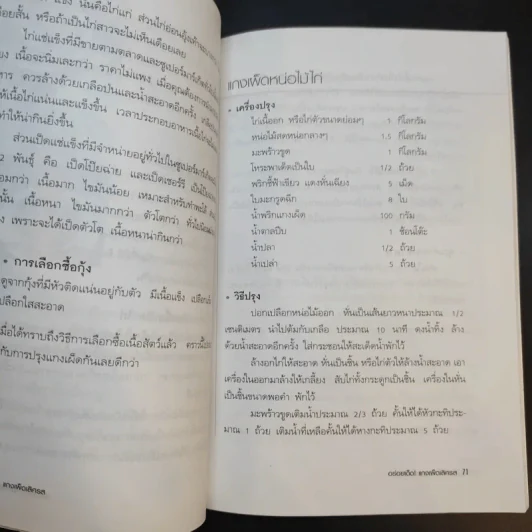 แข็ง นั่นคือไก่แก่ ส่วนไก่อ่อนจุ้งเท้า
เดือยสั้น หรือถ้าเป็นไก่สาวจะไม่เห็นเดือยเลย
ไก่แช่แข็งที่มีขายตามตลาดและซูเปอร์มาร์เก็ต
เนื้อจะนิ่มเละกว่า ราคาไม่แพง เมื่อคุณต้องการ
หาร ควรล้างด้วยเกลือป่นและน้ำสะอาดอีกครั้ง
ให้เนื้อไก่แน่นและแข็งขึ้น เวลาประกอบอาหารเนื้อไก่
ทำให้น่ากินยิ่งขึ้น
ส่วนเป็ดแช่แข็งที่มีจำหน่ายอยู่ทั่วไปในซูเปอร์มาร์เก็ต
2 พันธุ์ คือ เป็ดโป๊ยฉ่าย และเป็ดเชอร์รี่
อมกว่า เนื้อมาก ไขมันน้อย เหมาะสำหรับทำ
นั้น เนื้อหนา ไขมันมากกว่า ตัวโตกว่า
เพราะจะได้เป็ดตัวโต เนื้อหนาน่ากินกว่า
• การเลือกซื้อกุ้ง
ดูจากกุ้งที่มีหัวติดแน่นอยู่กับตัว มีเนื้อแข็ง
เปลือกใสสะอาด
มื่อได้ทราบถึงวิธีการเลือกซื้อเนื้อสัตว์แล้ว
กับการปรุงแกงเผ็ดกันเลยดีกว่า
แกงเผ็ดเลิศรส
แกงเผ็ดหน่อไม้ไก่
• เครื่องปรุง
ไก่เนื้ออก หรือไก่ตัวขนาดย่อมๆ 1 กิโลกรัม
หน่อไม้สดหน่อกลางๆ 1.5 กิโลกรัม
มะพร้าวขูด 1 กิโลกรัม
โหระพาเด็ดเป็นใบ 1/2 ถ้วย
พริกชี้ฟ้าเขียว แดงหั่นเฉียง 5 เม็ด
ใบมะกรูดฉีก 8 ใบ
น้ำพริกแกงเผ็ด 100 กรัม
น้ำตาลปีบ 1 ช้อนโต๊ะ
น้ำปลา 1/2 ถ้วย
น้ำเปล่า 5 ถ้วย
• วิธีปรุง
ปอกเปลือกหน่อไม้ออก หั่นเป็นเส้นยาวหนาประมาณ 1/2
เซนติเมตร นำไปต้มกับเกลือ ประมาณ 10 นาที ดงน้ำทิ้ง ล้าง
ด้วยน้ำสะอาดอีกครั้ง ใส่กระชอนให้สะเด็ดน้ำพักไว้
ล้างอกไก่ให้สะอาด หั่นเป็นชิ้น หรือไก่ตัวให้ล้างน้ำสะอาด เอา
เครื่องในออกมาล้างให้เกลี้ยง สับไก่ทั้งกระดูกเป็นชิ้น เครื่องในหั่น
เป็นชิ้นขนาดพอคำ พักไว้
มะพร้าวขูดเติมน้ำประมาณ 2/3 ถ้วย คั้นให้ได้หัวกะทิประ-
มาณ 1 ถ้วย เติมน้ำที่เหลือคั้นให้ได้หางกะทิประมาณ 5 ถ้วย
อร่อยเด็ด! แกงเผ็ดเลิศรส 71